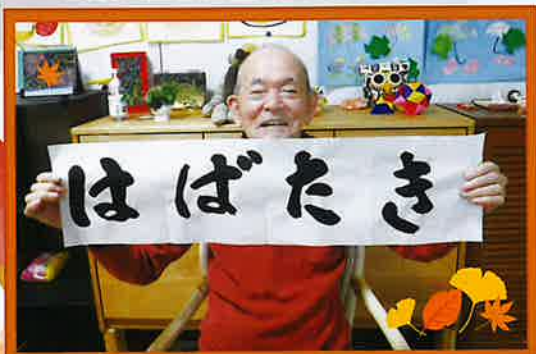 はばたき